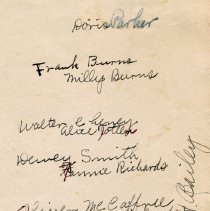 Doris Parker
Frank Burns
Milly Burns
Walter C
Alice
Dewey Smith
Fannie Richards
McCaffrey
Bailey